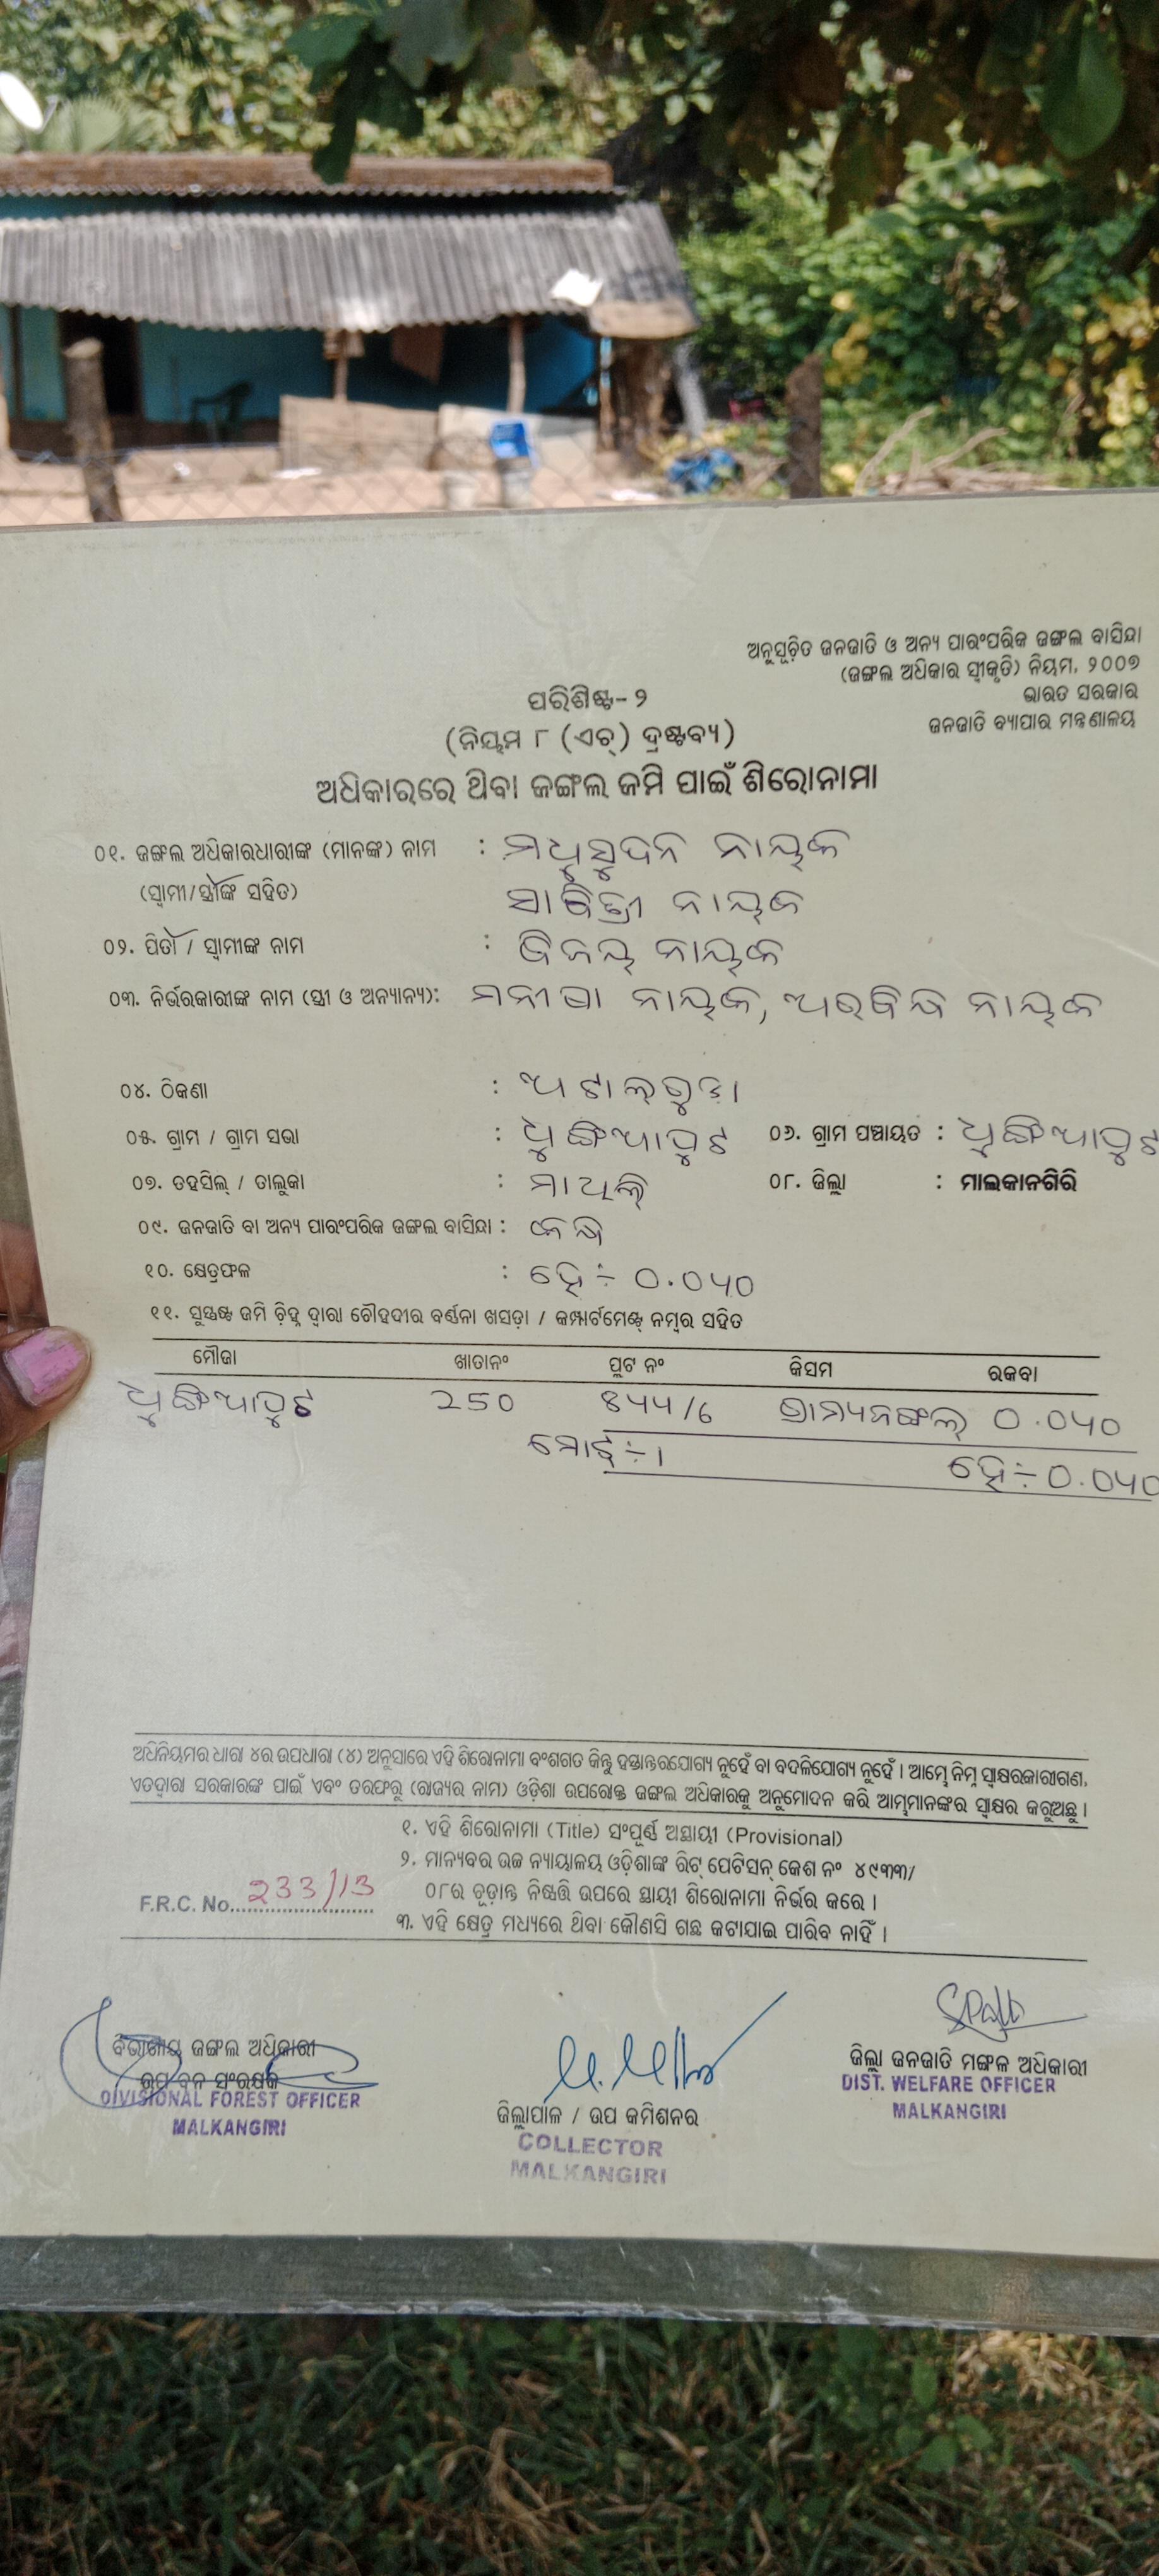 ଅନୁସୂଚିତ ଜନଜାତି ଓ ଅନ୍ୟ ପାରଂପରିକ ଜଙ୍ଗଲ ବାସିନ୍ଦା
(ଜଙ୍ଗଲ ଅଧିକାର ସ୍ୱୀକୃତି) ନିୟମ, ୨୦୦୭
ଭାରତ ସରକାର
ଜନଜାତି ବ୍ୟାପାର ମନ୍ତ୍ରଣାଳୟ
ପରିଶିଷ୍ଟ- ୨
(ନିୟମ ୮ (ଏଚ୍) ଦ୍ରଷ୍ଟବ୍ୟ)
ଅଧିକାରରେ ଥିବା ଜଙ୍ଗଲ ଜମି ପାଇଁ ଶିରୋନାମା
୦୧. ଜଙ୍ଗଲ ଅଧିକାରଧାରୀଙ୍କ (ମାନଙ୍କ) ନାମ : ମଧୁସୁଦନ ନାୟକ
(ସ୍ୱାମୀ/ସ୍ତ୍ରୀଙ୍କ ସହିତ) ସାବିତ୍ରୀ ନାୟକ
୦୨. ପିତା / ସ୍ୱାମୀଙ୍କ ନାମ : ବିଜୟ ନାୟକ
୦୩. ନିର୍ଭରକାରୀଙ୍କ ନାମ (ସ୍ତ୍ରୀ ଓ ଅନ୍ୟାନ୍ୟ): ମନୀଷା ନାୟକ, ଅରବିନ୍ଦ ନାୟକ
୦୪. ଠିକଣା : ଅଟାଲଗୁଡ଼ା
୦୫. ଗ୍ରାମ / ଗ୍ରାମ ସଭା : ଧୁଙ୍ଗିଆପୁଟ ୦୬. ଗ୍ରାମ ପଞ୍ଚାୟତ : ଧୁଙ୍ଗିଆପୁଟ
୦୭. ତହସିଲ୍ / ତାଲୁକା : ମାଥିଲି ୦୮. ଜିଲ୍ଲା : ମାଲକାନଗିରି
୦୯. ଜନଜାତି ବା ଅନ୍ୟ ପାରଂପରିକ ଜଙ୍ଗଲ ବାସିନ୍ଦା :
୧୦. କ୍ଷେତ୍ରଫଳ : ହେ÷ ୦.୦୪୦
୧୧. ସୁସ୍ପଷ୍ଟ ଜମି ଚିହ୍ନ ଦ୍ୱାରା ଚୌହଦୀର ବର୍ଣ୍ଣନା ଖସଡ଼ା / କମ୍ପାର୍ଟମେଣ୍ଟ୍ ନମ୍ବର ସହିତ
ମୌଜା ଖାତାନଂ ପ୍ଲଟ ନଂ କିସମ ରକବା
ଧୁଙ୍ଗିଆପୁଟ 250 ଗ୍ରାମ୍ୟଜଙ୍ଗଲ ୦.୦୪୦
ମୋଟ÷ ୧ ହେ÷୦.୦୪୦
ଅଧିନିୟମର ଧାରା ୪ର ଉପଧାରା (୪) ଅନୁସାରେ ଏହି ଶିରୋନାମା ବଂଶଗତ କିନ୍ତୁ ହସ୍ତାନ୍ତରଯୋଗ୍ୟ ନୁହେଁ ବା ବଦଳିଯୋଗ୍ୟ ନୁହେଁ । ଆମ୍ଭେ ନିମ୍ନ ସ୍ୱାକ୍ଷରକାରୀଗଣ,
ଏତଦ୍ଦ୍ୱାରା ସରକାରଙ୍କ ପାଇଁ ଏବଂ ତରଫରୁ (ରାଜ୍ୟର ନାମ) ଓଡ଼ିଶା ଉପରୋକ୍ତ ଜଙ୍ଗଲ ଅଧିକାରକୁ ଅନୁମୋଦନ କରି ଆମ୍ଭମାନଙ୍କର ସ୍ୱାକ୍ଷର କରୁଅଛୁ ।
୧. ଏହି ଶିରୋନାମା (Title) ସଂପୂର୍ଣ୍ଣ ଅସ୍ଥାୟୀ (Provisional)
୨. ମାନ୍ୟବର ଉଚ୍ଚ ନ୍ୟାୟାଳୟ ଓଡ଼ିଶାଙ୍କ ରିଟ୍ ପେଟିସନ୍ କେଶ ନଂ ୪୯୩୩/
୦୮ର ଚୂଡ଼ାନ୍ତ ନିଷ୍ପତ୍ତି ଉପରେ ସ୍ଥାୟୀ ଶିରୋନାମା ନିର୍ଭର କରେ ।
F.R.C. No. 233/13
୩. ଏହି କ୍ଷେତ୍ର ମଧ୍ୟରେ ଥିବା କୌଣସି ଗଛ କଟାଯାଇ ପାରିବ ନାହିଁ ।
ବିଭାଗୀୟ ଜଙ୍ଗଲ ଅଧିକାରୀ
ଉପ ବନ ସଂରକ୍ଷକ
DIVISIONAL FOREST OFFICER
MALKANGIRI
ଜିଲ୍ଲାପାଳ / ଉପ କମିଶନର
COLLECTOR
MALKANGIRI
ଜିଲ୍ଲା ଜନଜାତି ମଙ୍ଗଳ ଅଧିକାରୀ
DIST. WELFARE OFFICER
MALKANGIRI